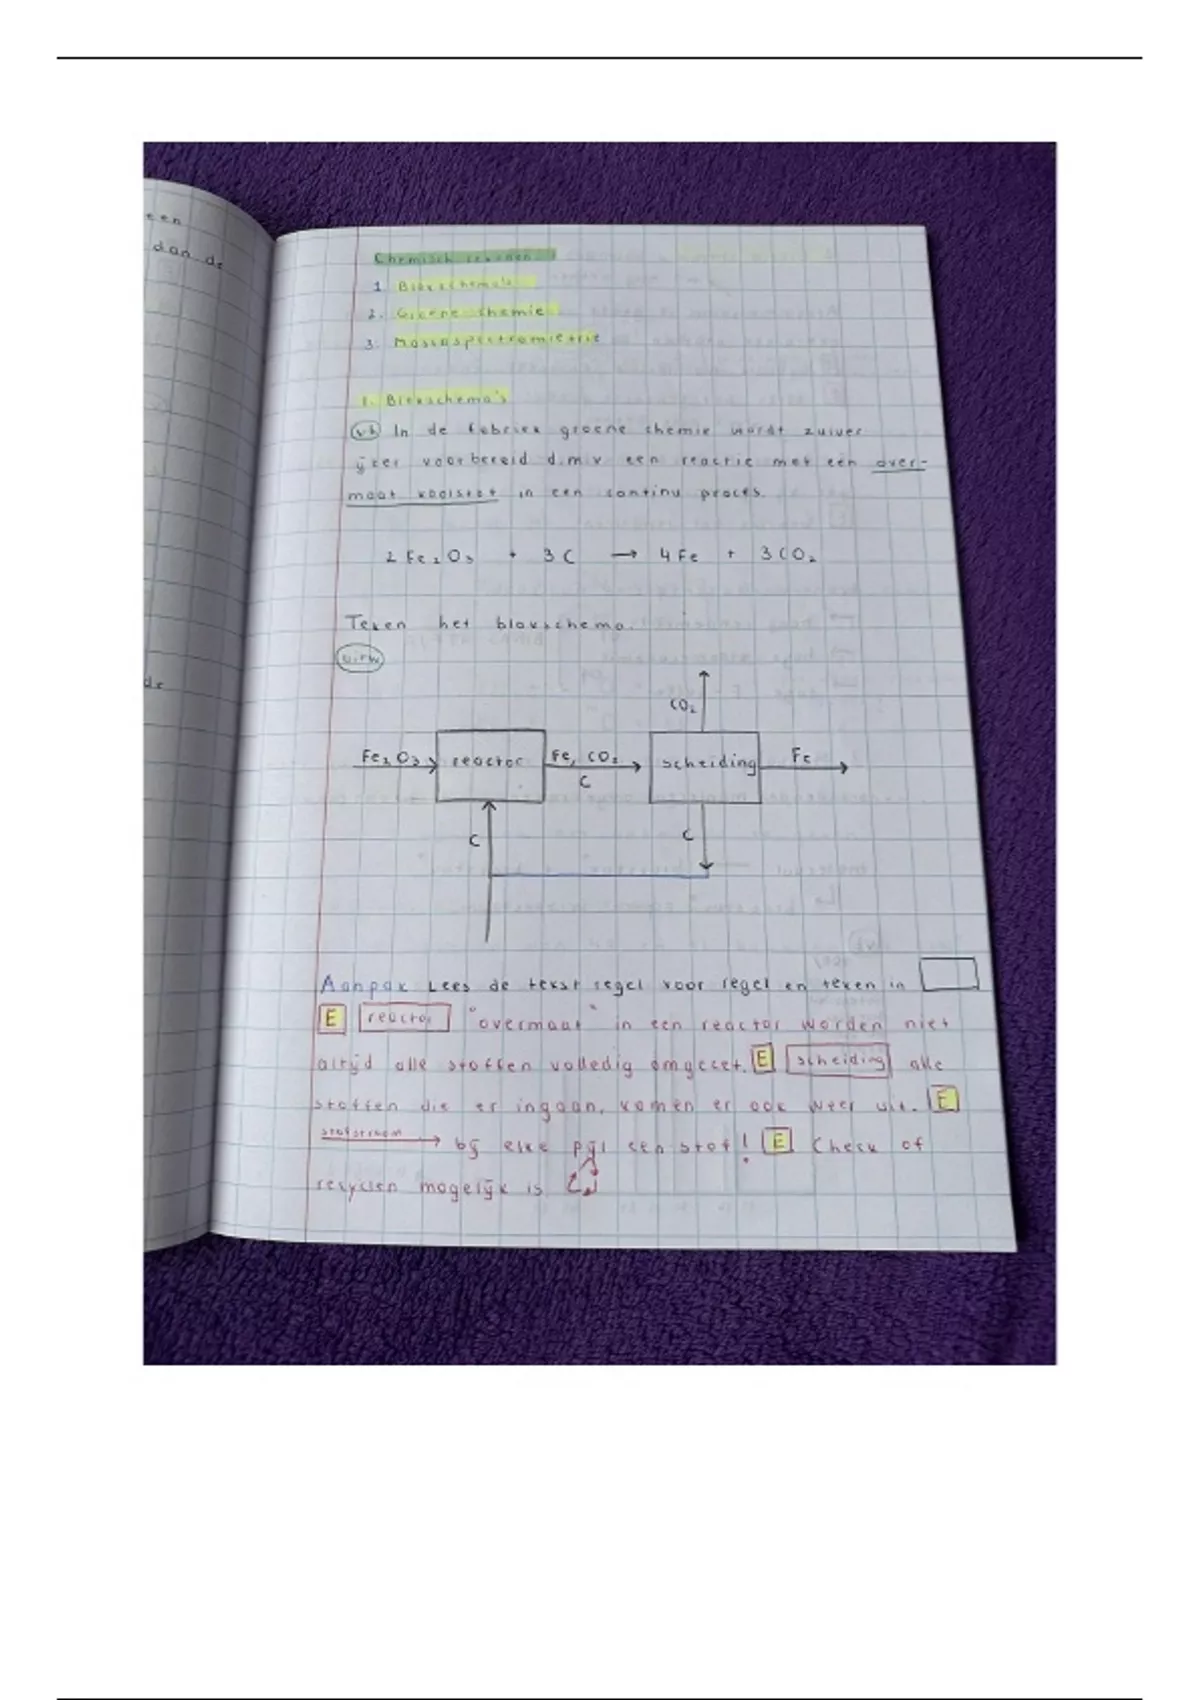 een
dan de
de
Chemisch rekenen
1 Blokschema's
2. Groene chemie
3. Massaspectrometrie
1. Blokschema's
vb In de fabriek groene chemie wordt zuiver
ijzer voorbereid d.m.v een reactie met een over-
maat koolstof in een continu proces.
2 Fe₂O₃ + 3C → 4Fe + 3CO₂
Teken het blokschema.
uitw
CO₂
Fe₂O₃ reactor Fe, CO₂ scheiding Fe
C
C C
Aanpak Lees de tekst regel voor regel en teken in
E reactor "overmaat" in een reactor worden niet
altijd alle stoffen volledig omgezet. E scheiding alle
stoffen die er ingaan, komen er ook weer uit. E
stofstroom → bij elke pijl een stof! E Check of
recyclen mogelijk is